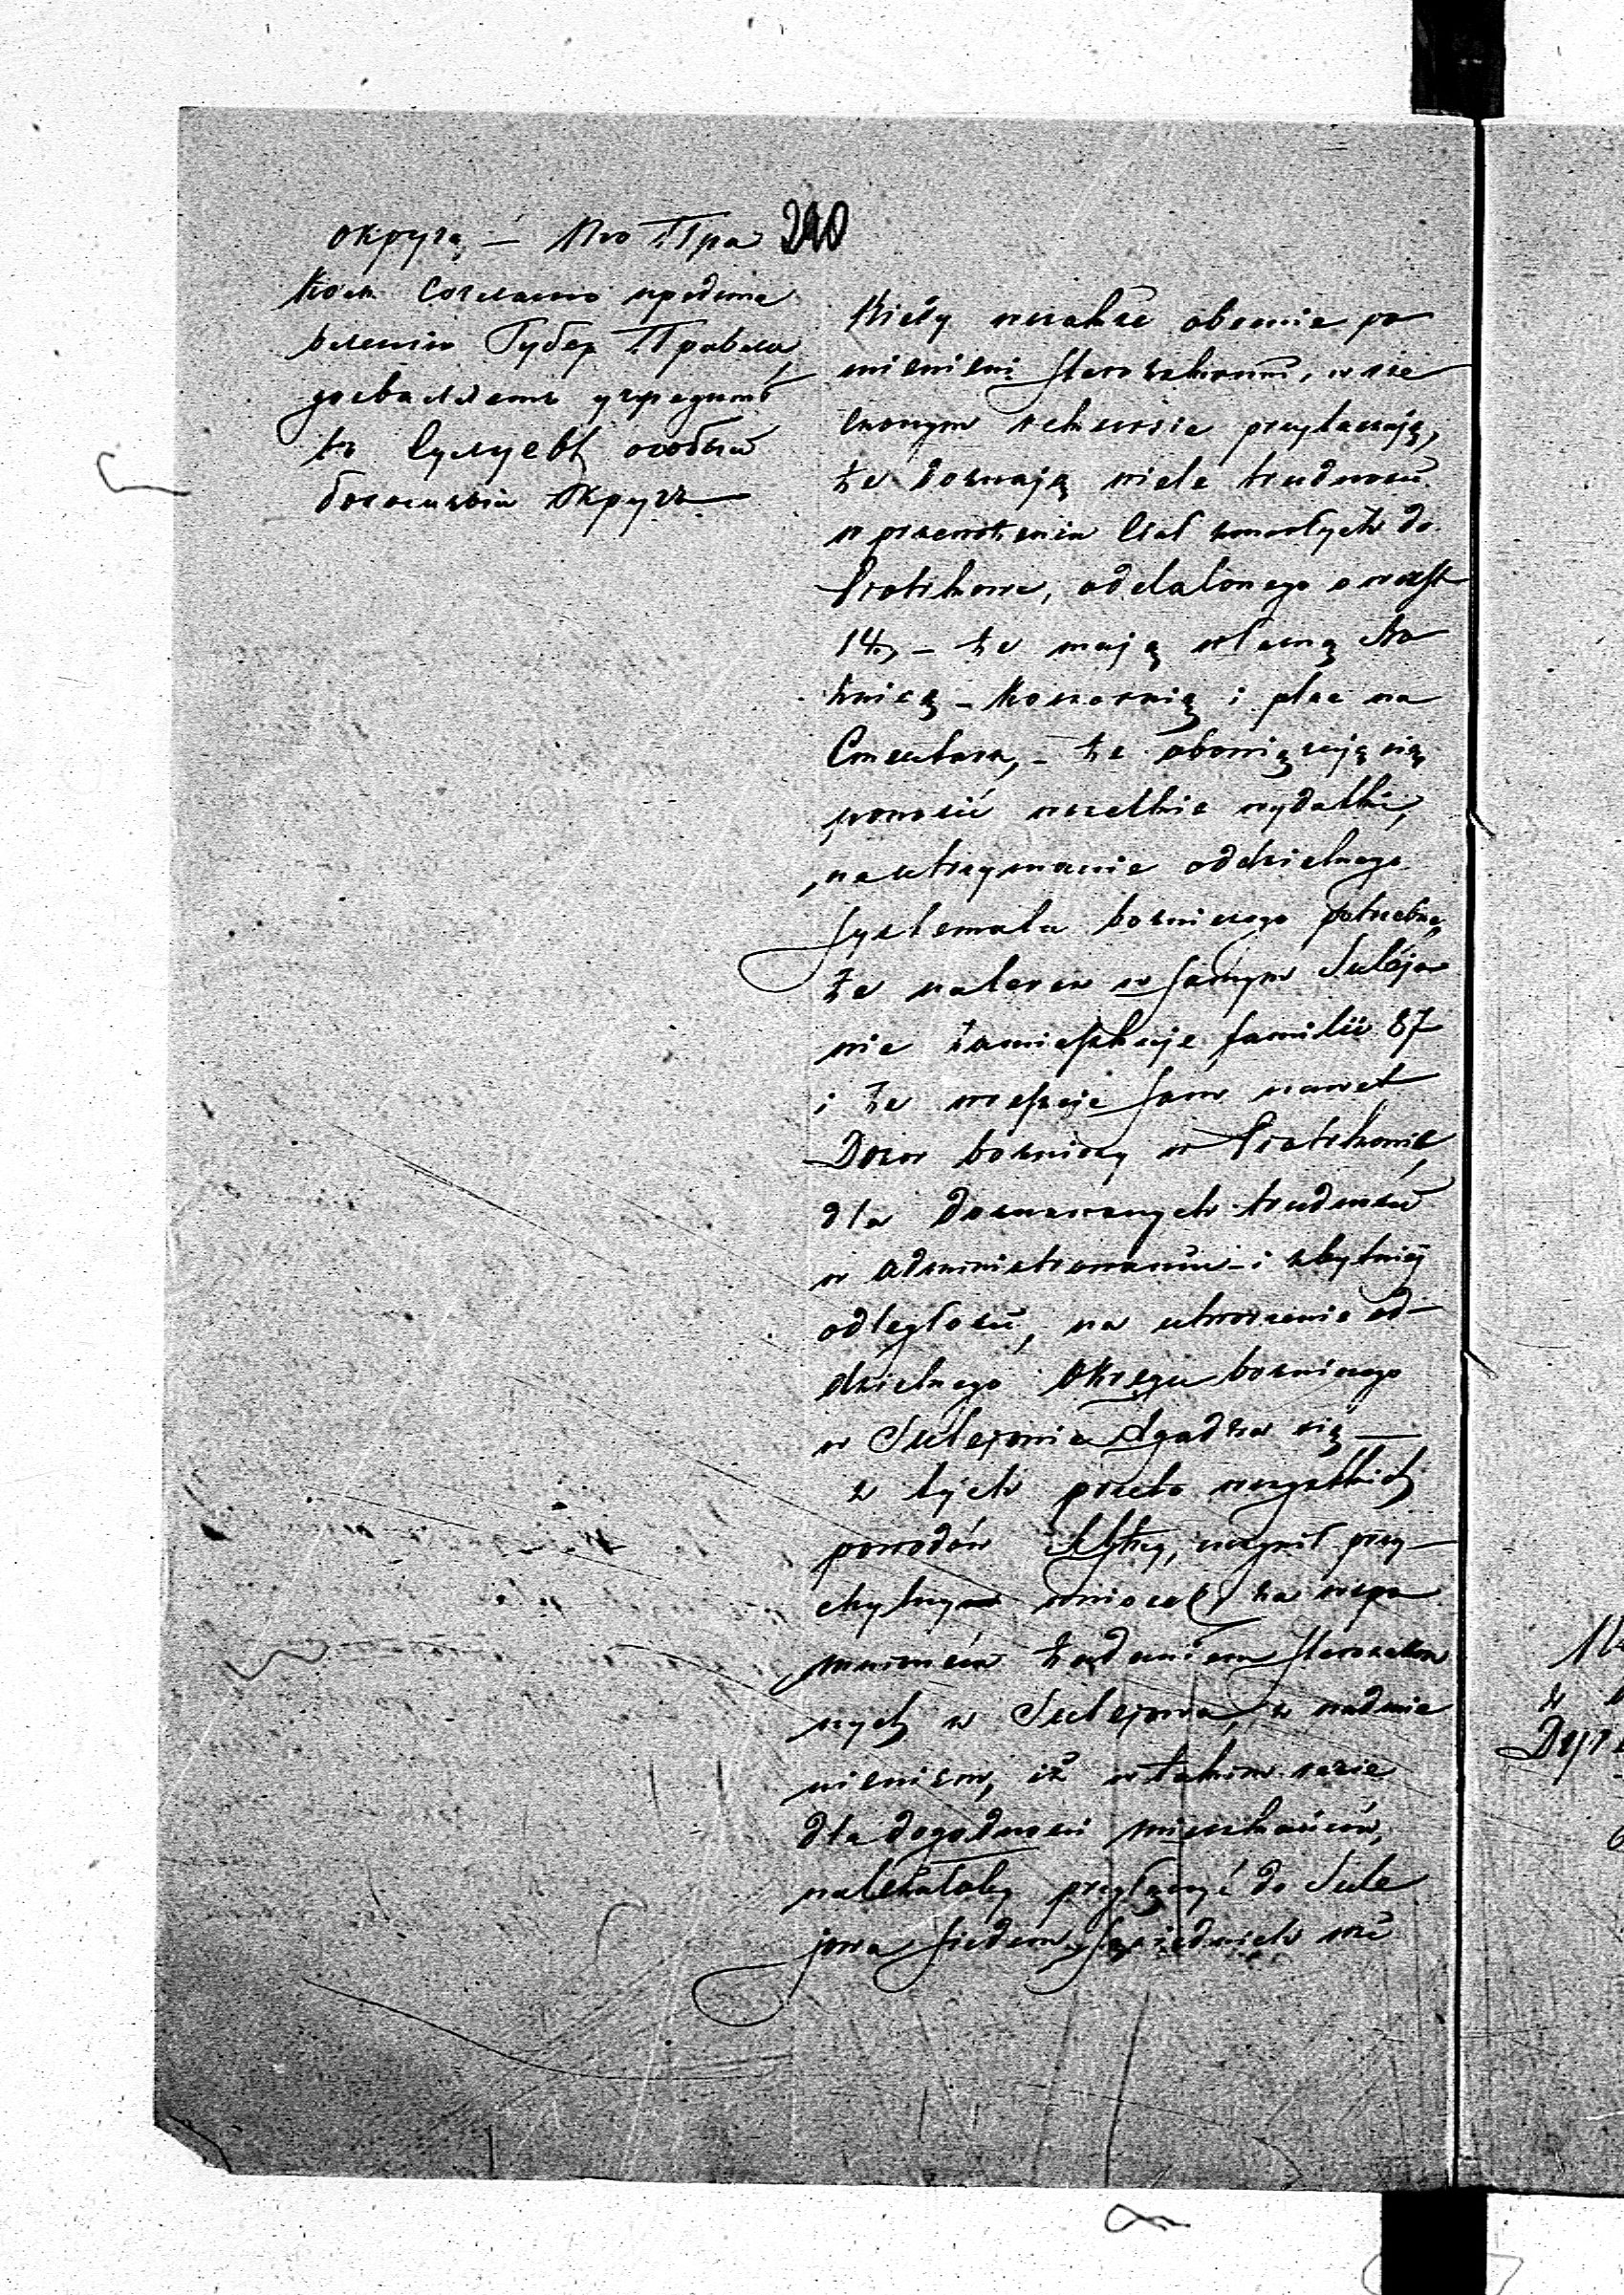 округа, — Но Пра
Ком Согласно представ
влению Губер Правлен,
дозволяетъ учредить
въ Сулуевѣ особый
божничій Округъ
240
Kiedy wszakże obecnie po
mienieni Starozakonni, w rze
czonym rekursie przytaczają,
że doznają wiele trudności
w przewożeniu Ciał zmarłych do
Piotrkowa, oddalonego o werst
14, – że mają własną Bo
żnicę – Koszernię i plac na
Cmentarz, – że obowięzują się
ponosić wszelkie wydatki,
na utrzymanie oddzielnego
Systematu bożniczego potrzebne,
że nareszcie w samym Sulejo
wie zamieszkuje familii 87
i że wreszcie sam nawet
Dozór bożniczy w Piotrkowie
dla doznawanych trudności
w administrowaniu i zbytniéj
odległości, na utworzenie od-
dzielnego Okręgu bożniczego
w Sulejowie zgadza się —
z tych przeto wszystkich
powodów uczynił przy-
chylny wniosek za wspo
mnionem żądaniem Starozakon
nych w Sulejowie, z nadmie
nieniem, iż w takim razie
dla dogodności mieszkańców,
należałoby przyłączyć do Sule
jowa siedem sąsiednich wsi